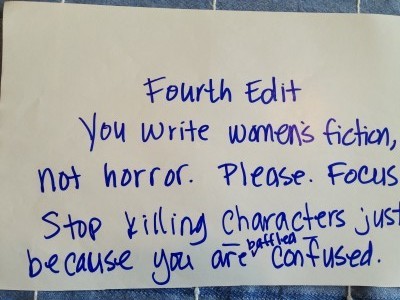 Fourth Edit
You write women's fiction,
not horror. Please. Focus
Stop killing characters just
because you are baffled confused.